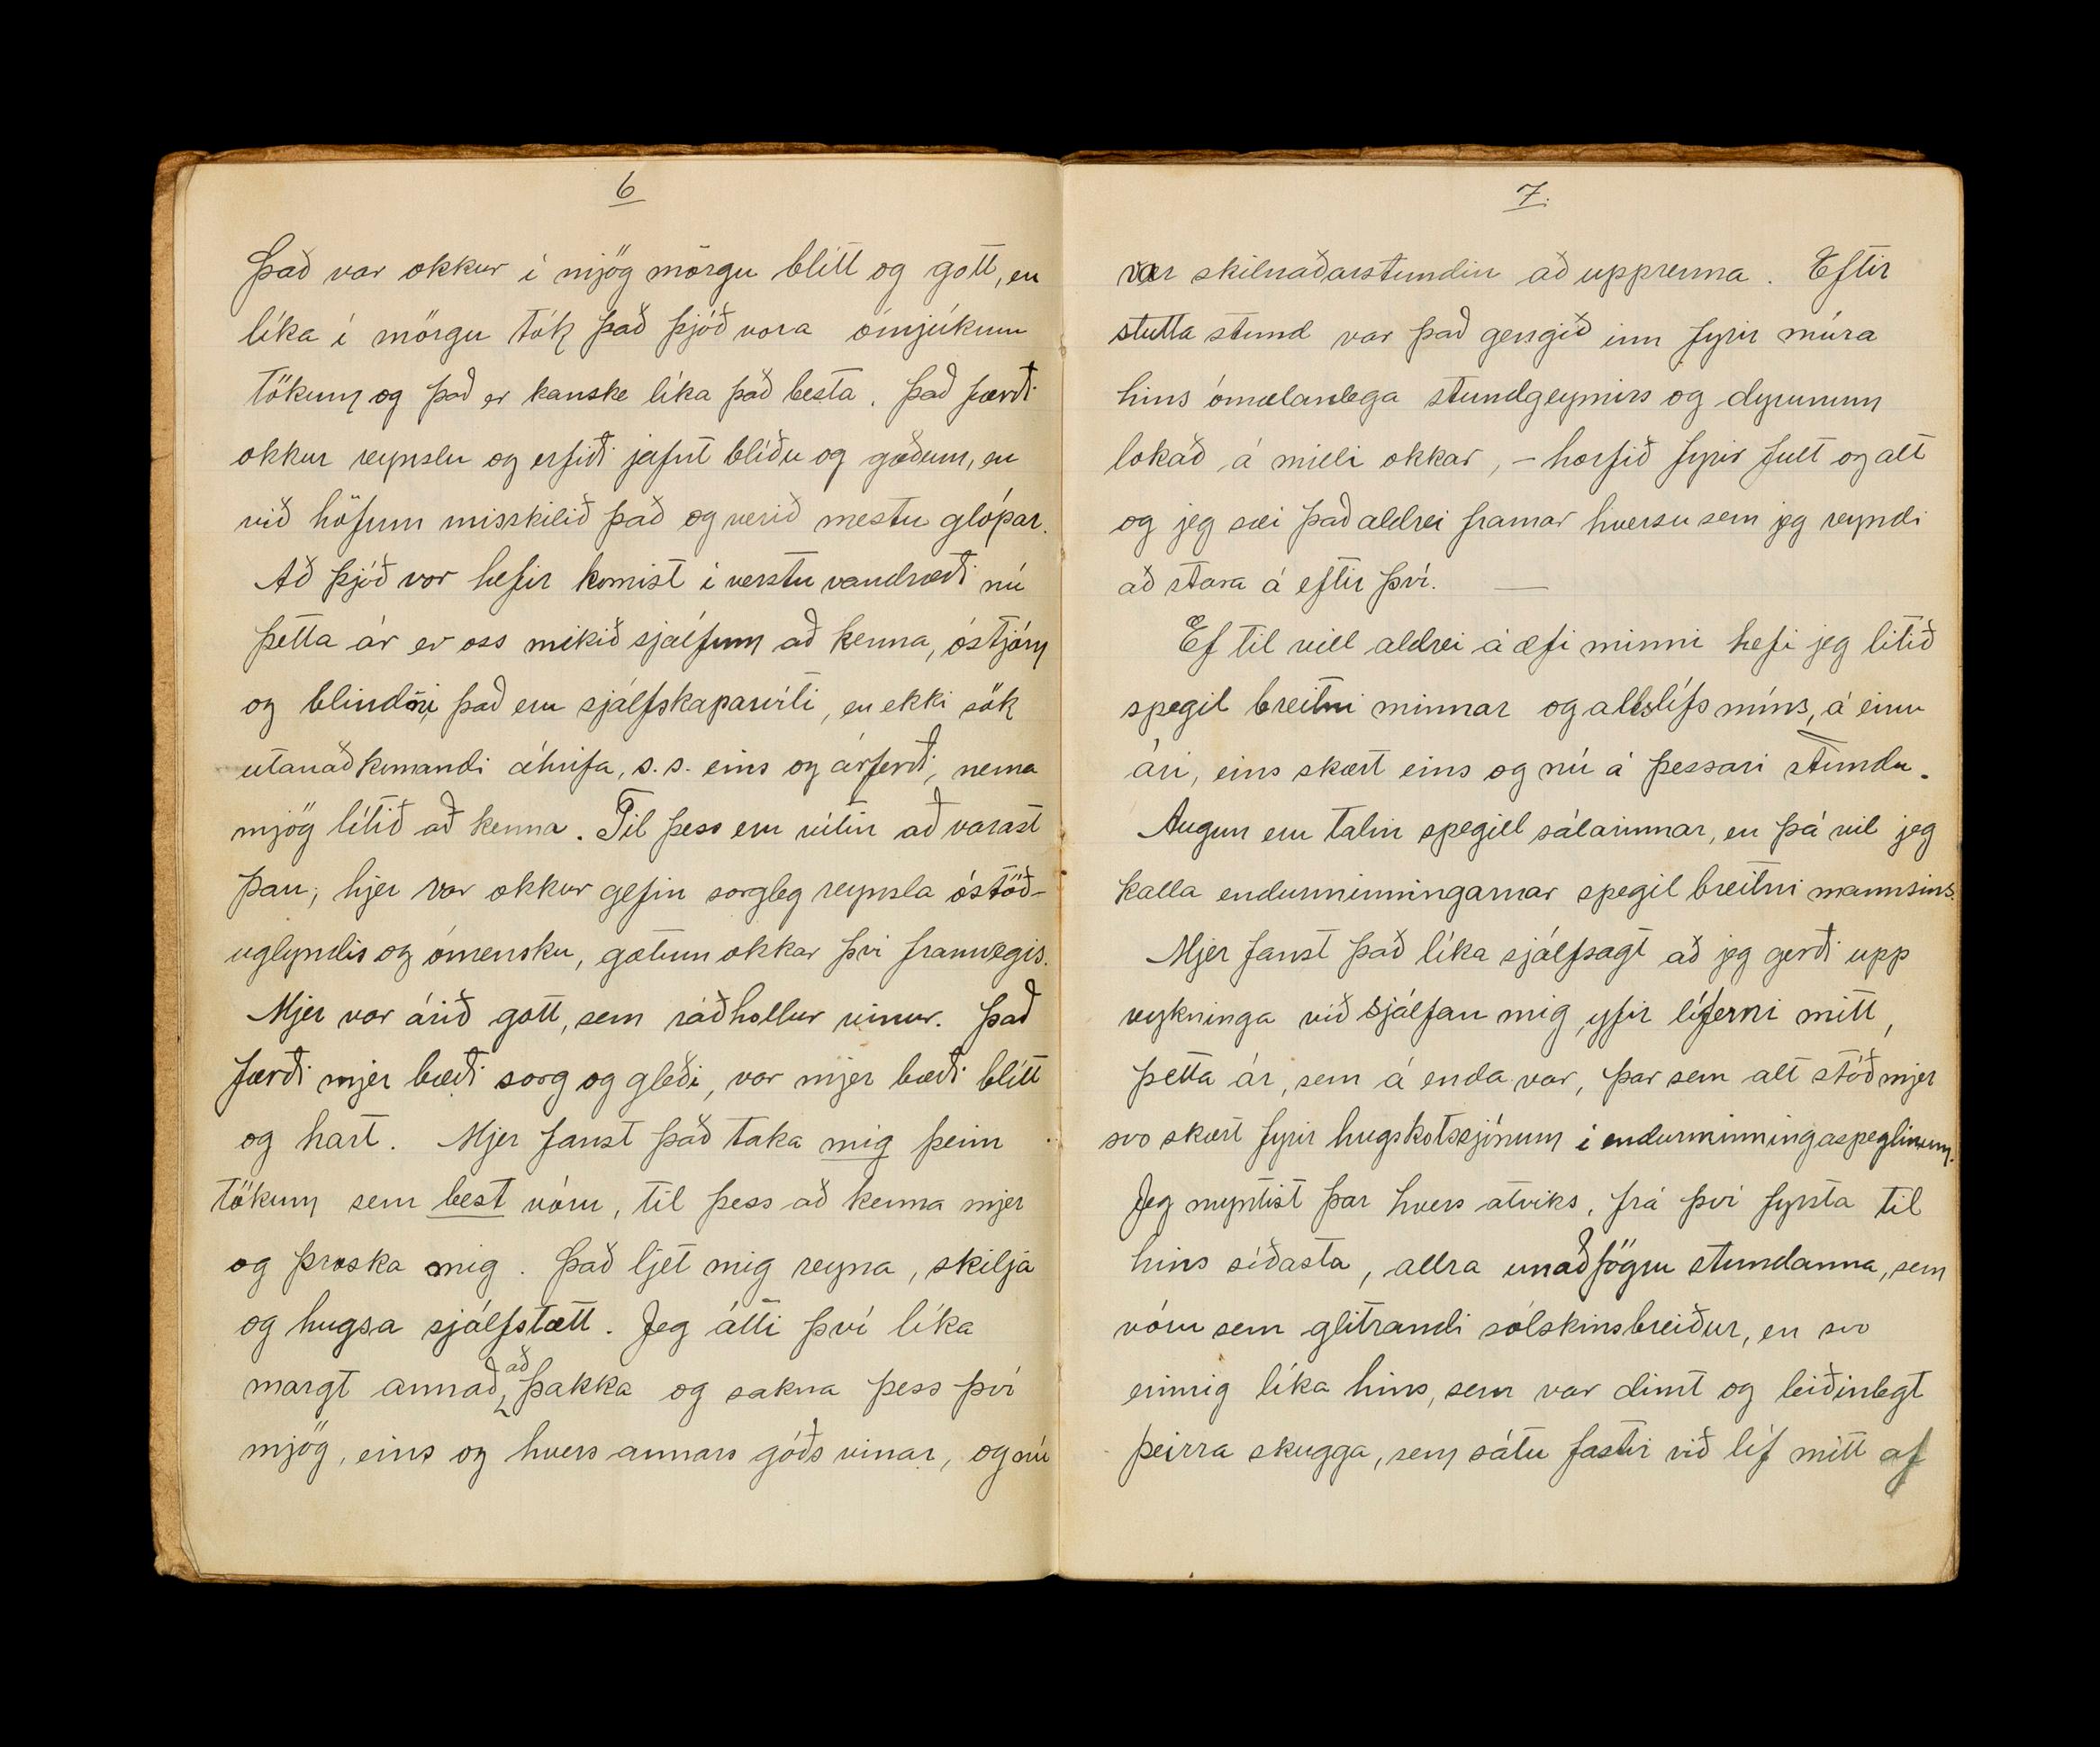 6
Það var okkur í mjög mörgu blítt og gott, en
líka í mörgu tók það þjóð vora ómjúkum
tökum og það er kanske líka það besta. Það færði
okkur reynslu og erfiði jafnt blíðu og gæðum, en
við höfum misskilið það og verið mestu glópar.
Að þjóð vor hefir komist í verstu vandræði nú
þetta ár er oss mikið sjálfum að kenna, óstjórn
og blindni það eru sjálfskaparvíti, en ekki sök
utanaðkomandi áhrifa, s.s. eins og árferði, nema
mjög lítið að kenna. Til þess eru vítin að varast
þau; hjer var okkur gefin sorgleg reynsla óstöð-
uglyndis og ómensku, gætum okkar því framvegis.
Mjer var árið gott, sem ráðhollur vinur. Það
færði mjer bæði sorg og gleði, var mjer bæði blítt
og hart. Mjer fanst það taka mig þeim
tökum sem best vóru, til þess að kenna mjer
og þroska mig. Það ljet mig reyna, skilja
og hugsa sjálfstætt. Jeg átti því líka
margt annað að þakka og sakna þess því
mjög, eins og hvers annars góðs vinar, og nú
7.
var skilnaðarstundin að upprenna. Eftir
stutta stund var það gengið inn fyrir múra
hins ómælanlega stundgeymirs og dyrunum
lokað á milli okkar, – horfið fyrir fult og alt
og jeg sæi það aldrei framar hversu sem jeg reyndi
að stara á eftir því. —
Ef til vill aldrei á æfi minni hefi jeg litið
spegil breitni minnar og alls lífs míns, á einu
ári, eins skært eins og nú á þessari stundu.
Augun eru talin spegill sálarinnar, en þá vil jeg
kalla endurminningarnar spegil breitni mannsins.
Mjer fanst það líka sjálfsagt að jeg gerði upp
reykninga við sjálfan mig, yfir líferni mitt,
þetta ár, sem á enda var, þar sem alt stóð mjer
svo skært fyrir hugskotssjónum í endurminningaspeglinum.
Jeg myntist þar hvers atviks, frá því fyrsta til
hins síðasta, allra unaðfögru stundanna, sem
vóru sem glitrandi sólskinsbreiður, en svo
einnig líka hins, sem var dimt og leiðinlegt
þeirra skugga, sem sátu fastir við líf mitt af